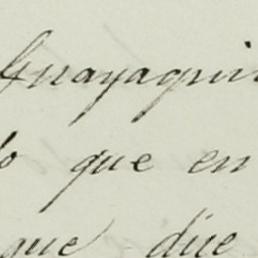 Guayaqui
o que en
que dije